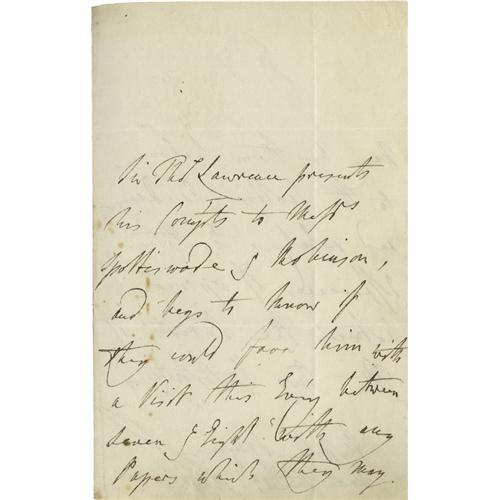 Sir Thos Lawrence presents
his Compts to Messrs
Spottiswoode & Robinson,
and begs to know if
they could favr him with
a Visit this Eveg between
seven & Eight with any
Papers which they may